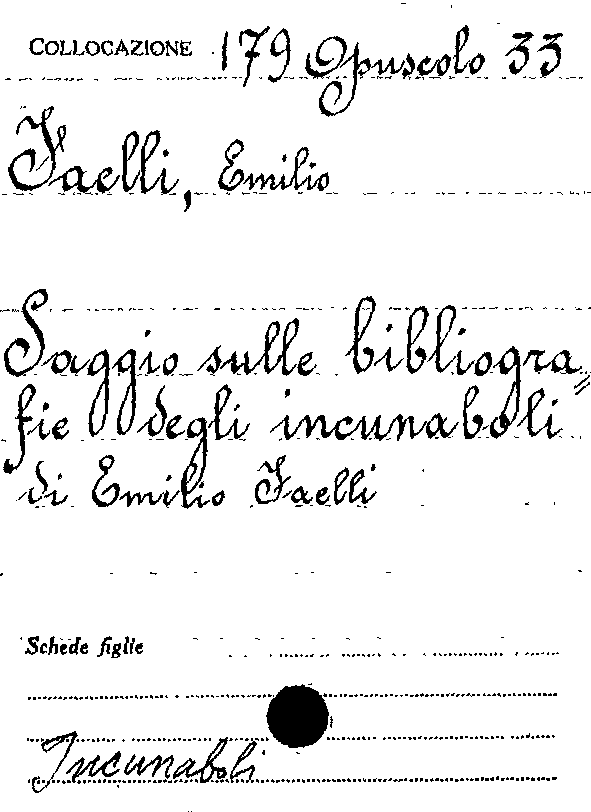 COLLOCAZIONE 179 Opuscolo 33
Faelli, Emilio
Saggio sulle bibliogra=
fie degli incunaboli
di Emilio Faelli
Schede figlie
Incunaboli